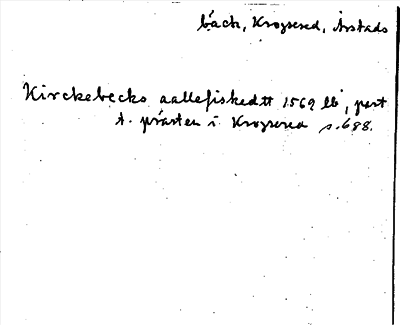 bäck, Krogsered, Årstads
Kirckebecks aallefiskedtt 1569 lb, part
t. prästen i Krogsered s. 688.